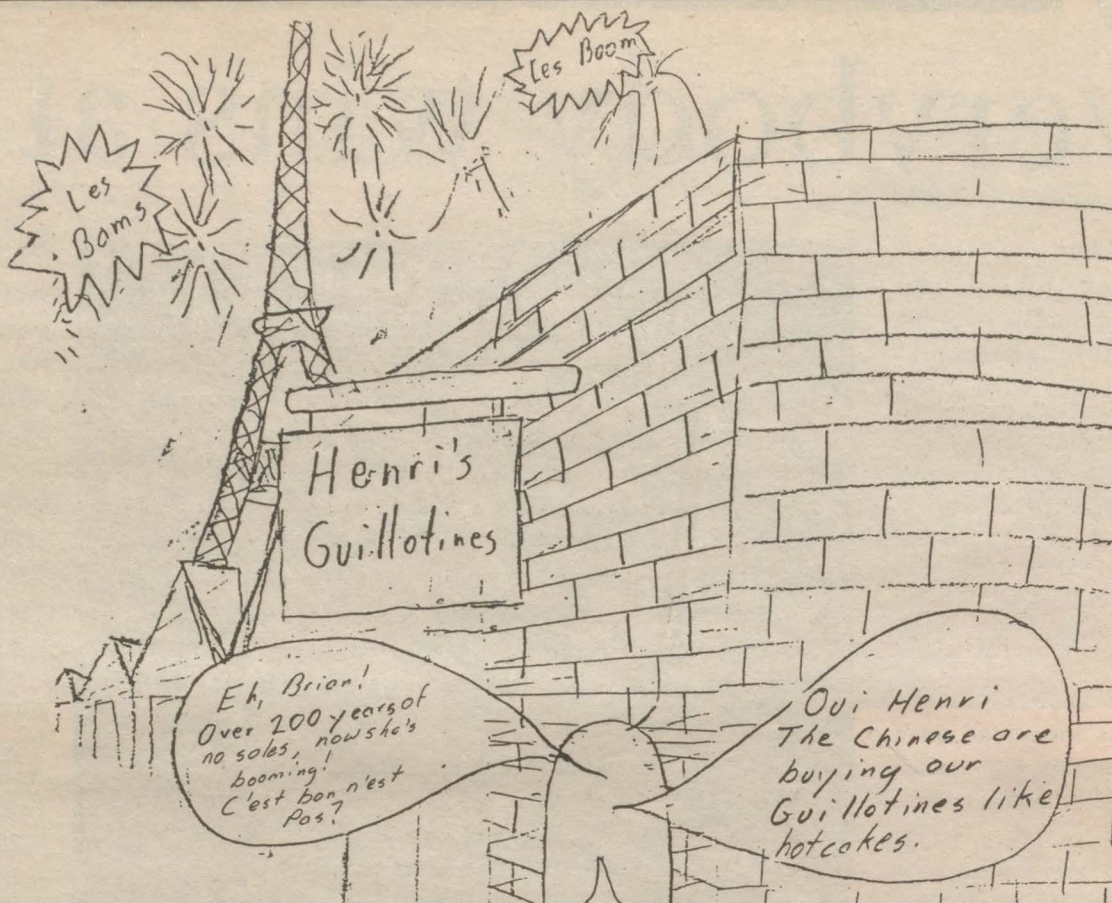 Les
Boms
Les Boom
Henri's
Guillotines
Eh, Brian!
Over 200 years of
no sales, now she's
booming!
C'est bon n'est
Pas?
Oui Henri
The Chinese are
buying our
Guillotines like
hotcakes.